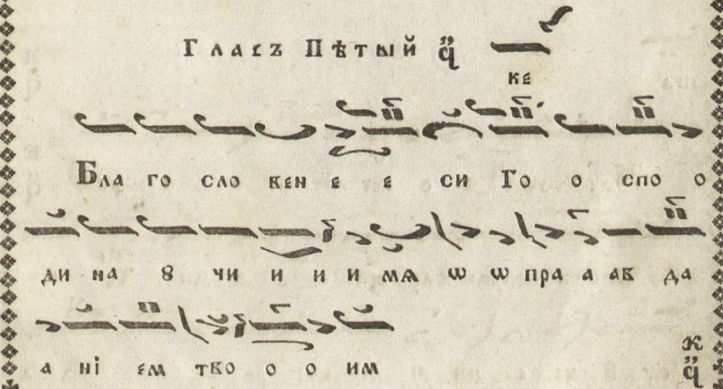 Гласъ Пѣтый
ке
Бла го сло вен е е си Го о спо о
ди на ȣ чи и и и мѧ ѡ ѡ пра а ав да
а ні ем тво о о им